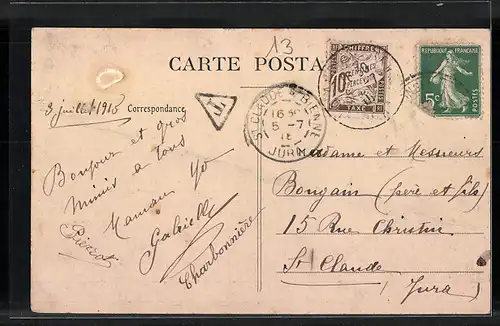 13
CARTE POSTA
CHIFFRE
10 CENTIMES
TAXE
REPUBLIQUE FRANÇAISE
5c
POSTES
3 juillet 1915
Correspondance
T
ST CLAUDE S BIENNE
16
5 -7
JURA
Bonjour et gros
mimis a tous
Maman Yo
Gabrielle
Pierrot
Charbonnière
Madame et Messieurs
Bougain (père et fils)
15 Rue Christin
St Claude
(Jura)